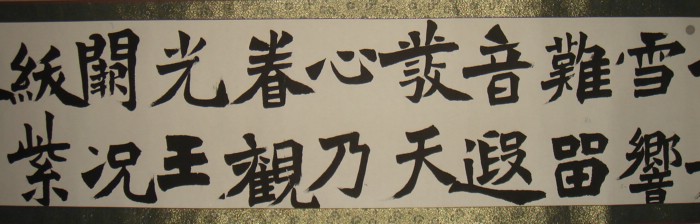 雪響
難留
音遐
發天
心乃
眷觀
光王
闕况
紱紫